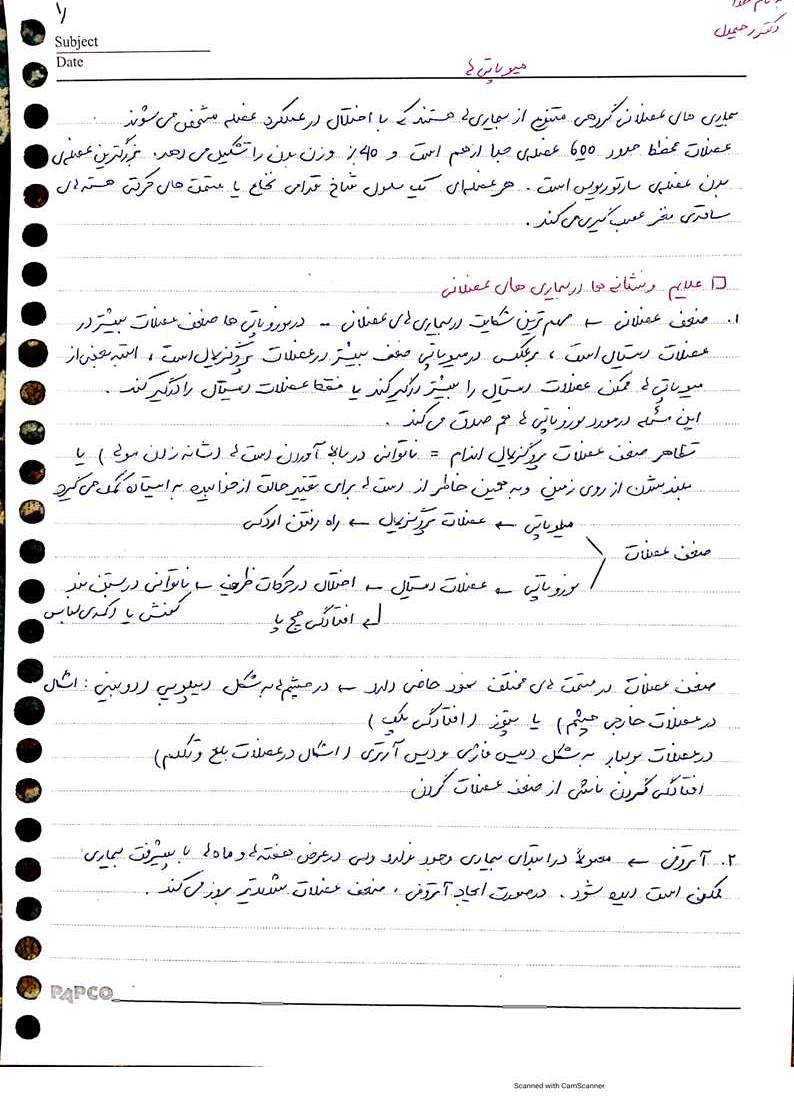 به نام خدا
دکتر رحیمیان
۱/
Subject
Date
میوپاتی ها
بیماری های عضلانی گروهی متنوع از بیماری ها هستند که با اختلال در عملکرد عضله مشخص می شوند
عضلات مخطط حدود 600 عضله ی مجزا از هم است و 40٪ وزن بدن را تشکیل می دهد. بزرگترین عضله ی
بدن عضله ی سارتوریوس است. هر عضله ای یک سلول شاخ قدامی نخاع یا قسمت های حرکتی هسته های
ساقه ی مغز عصب گیری می کند.
□ علایم و نشانه ها در بیماری های عضلانی
۱. ضعف عضلانی ← مهم ترین شکایت در بیماری های عضلانی -- در نوروپاتی ها ضعف عضلات بیشتر در
عضلات دیستال است، برعکس در میوپاتی ضعف بیشتر در عضلات پروگزیمال است، البته بعضی از
میوپاتی ها ممکن عضلات دیستال را بیشتر درگیر کند یا فقط عضلات دیستال را درگیر کند.
این مسئله در مورد نوروپاتی ها هم صدق می کند.
تظاهر ضعف عضلات پروگزیمال اندام = ناتوانی در بالا آوردن دست ها (شانه زدن موها) یا
بلند شدن از روی زمین و به همین خاطر از دست ها برای تغییر حالت از خوابیده به ایستاده کمک می گیرد
ضعف عضلات
میوپاتی ← عضلات پروگزیمال ← راه رفتن اردکی
نوروپاتی ← عضلات دیستال ← اختلال در حرکات ظریف ← ناتوانی در بستن بند
کفش یا دکمه ی لباس
↳ افتادگی مچ پا
ضعف عضلات در قسمت های مختلف نمود خاصی دارد ← در چشم ها به شکل دیپلوپی (دوبینی: اشکال
در عضلات خارجی چشم) یا پتوز (افتادگی پلک)
در عضلات بولبار به شکل دیس فاژی و دیس آرتری (اشکال در عضلات بلع و تکلم)
افتادگی گردن ناشی از ضعف عضلات گردن
۲. آتروفی ← معمولاً در ابتدای بیماری وجود ندارد ولی در عرض هفته ها و ماه ها با پیشرفت بیماری
ممکن است دیده شود. در صورت ایجاد آتروفی، ضعف عضلات شدیدتر بروز می کند.
PAPCO
Scanned with CamScanner